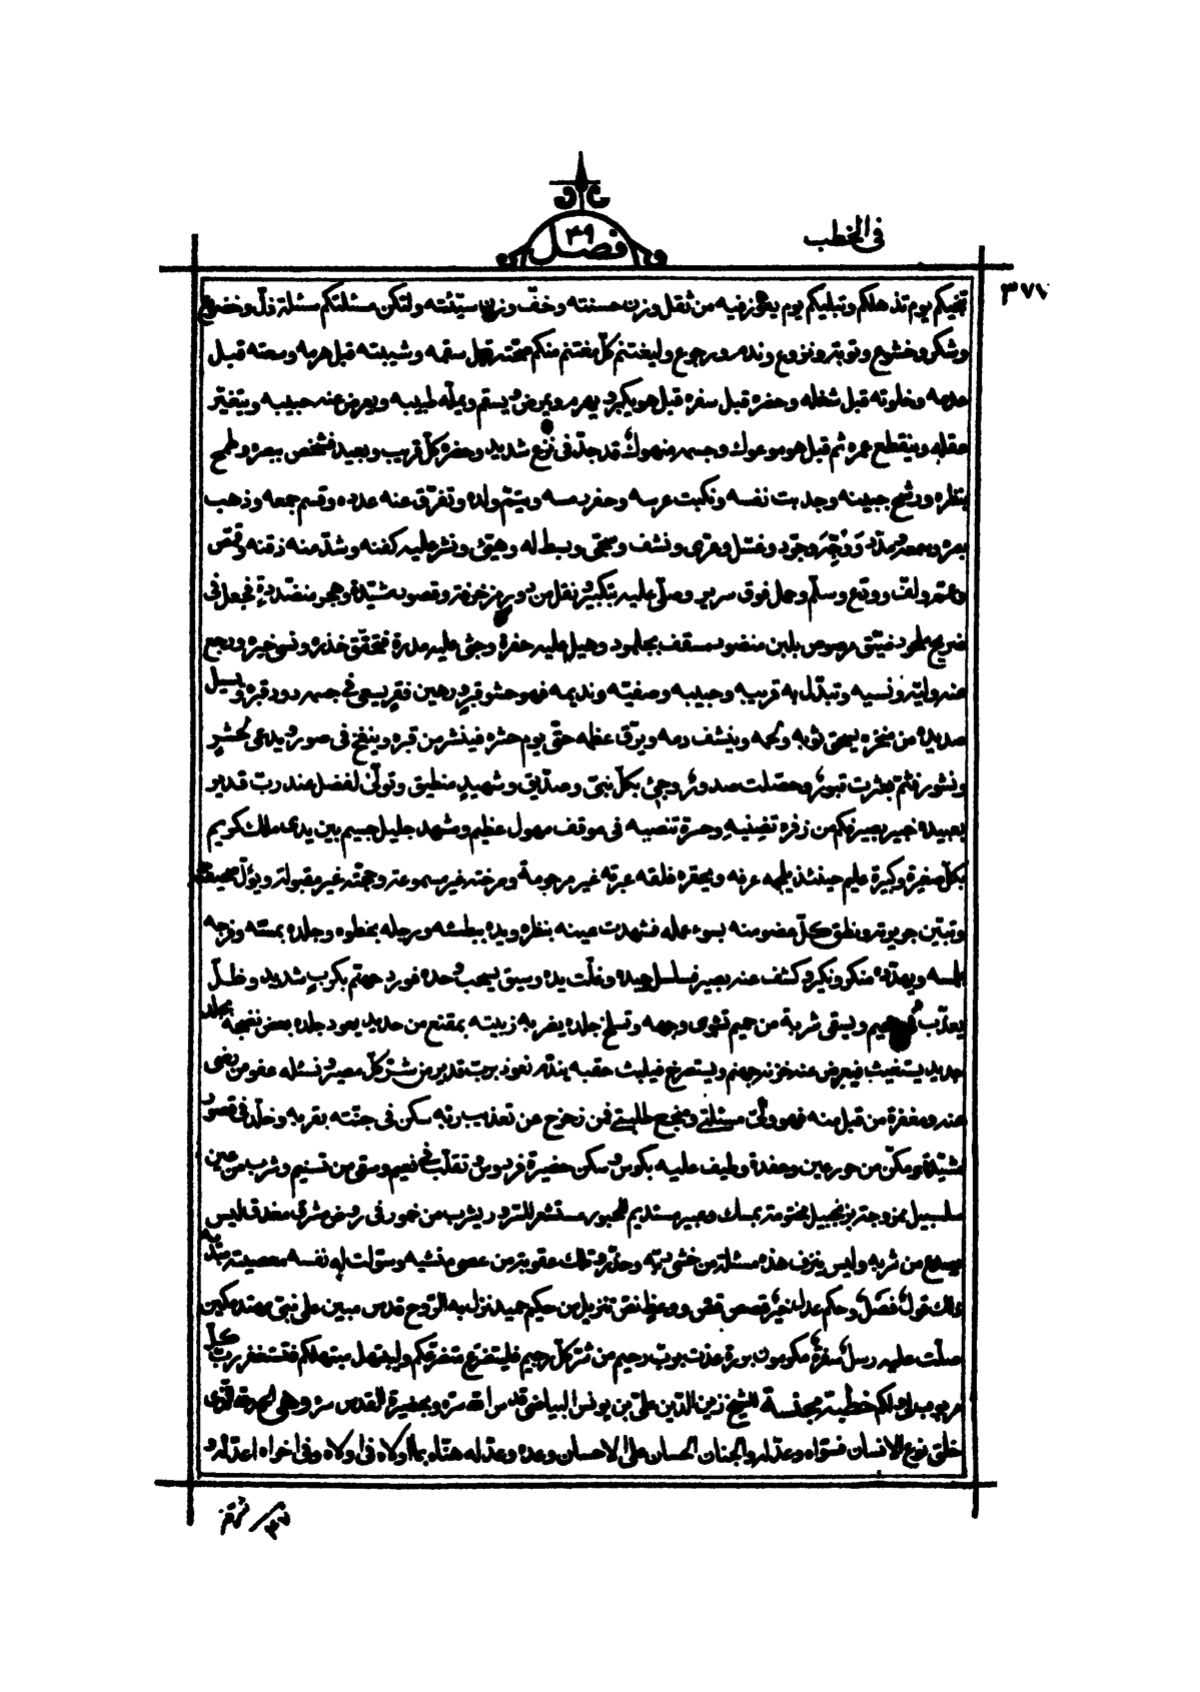 في الخطب
فصل ٤٩
٣٧٧
تنجيكم يوم تذهلكم وتبليكم يوم يفوز فيه من ثقل وزن حسنته وخف وزن سيئته ولتكن مسئلتكم مسئلة ذل وخضوع
وشكر وخشوع وتوبة ونزوع وندم ورجوع وليغتنم كل مغتنم منكم صحته قبل سقمه وشيبته قبل هرمه وسعته قبل
عدمه وخلوته قبل شغله وحضره قبل سفره قبل هو يكبر ويهرم ويمرض ويسقم ويمله طبيبه ويعرض عنه حبيبه ويتغير
عقله وينقطع عمره ثم قبل هو موعوك وجسمه منهوك قد جد في نزع شديد وحضره كل قريب وبعيد فشخص ببصره وطمح
بنظره ورشح جبينه وجذبت نفسه ونكبت عرسه وحفر رمسه ويتم ولده وتفرق عنه عدده وقسم جمعه وذهب
بصره وسمعه ومدد ووجه وجرد وغسل وعري ونشف وسجي وبسط له وهيئ ونشر عليه كفنه وشد منه ذقنه وقمص
وعمم ولف وودع وسلم وحمل فوق سرير وصلي عليه بتكبير ونقل من دور مزخرفة وقصور مشيدة وحجر منضدة فجعل في
ضريح ملحود ضيق مرصوص بلبن منضود مسقف بجلمود وهيل عليه حفره وحثي عليه مدره فتحقق حذره ونسي خبره ورجع
عنه وليه ونسيه وتبدل به قريبه وحبيبه وصفيه ونديمه فهو حشو قبر ورهين قفر يسعى في جسمه دود قبره ويسيل
صديده من منخره يسحق ثوبه ولحمه وينشف دمه ويرق عظمه حتى يوم حشره فينشر من قبره وينفخ في صور ويدعى لحشر
ونشور فثم بعثرت قبور وحصلت صدور وجئ بكل نبي وصديق وشهيد منطيق وتولى لفصل عند رب قدير
بعبيده خبير بصير فكم من زفرة تضنيه وحسرة تنصبه في موقف مهول عظيم ومشهد جليل جسيم بين يدي ملك كريم
بكل صغيرة وكبيرة عليم حينئذ يلجمه عرقه ويحقره قلقه عبرته غير مرحومة وصرخته غير مسموعة وحجته غير مقبولة ويؤل صحيفته
وتبين جريرته ونطق كل عضو منه بسوء عمله فشهدت عينه بنظره ويده ببطشه ورجله بخطوه وجلده بمسه وفرجه
بلمسه ويهدده منكر ونكير وكشف عنه بصير فسلسل جيده وغلت يده وسيق يسحب وحده فورد جهنم بكرب شديد وظل
يعذب في جحيم ويسقى شربة من حميم تشوي وجهه وتسلخ جلده يضربه زبنيته بمقمع من حديد يعود جلده بعد نضجه بجلد
جديد يستغيث فيعرض عنه خزنة جهنم ويستصرخ فيلبث حقبه يندم نعوذ برب قدير من شر كل مصير ونسئله عفو من رضي
عنه ومغفرة من قبل منه فهو ولي مسئلتي ومنجح طلبتي فمن زحزح عن تعذيب ربه سكن في جنته بقربه وخلد في قصور
مشيدة ومكن من حور عين وحفدة وطيف عليه بكوس وسكن حضيرة فردوس وتقلب في نعيم وسقي من تسنيم وشرب من عين
سلسبيل ممزوجة بزنجبيل مختومة بمسك وعبير مستديم للحبور مستشعر للسرور يشرب من خمور في روض مشرق مغدق ليس
يصدع من شربه وليس ينزف هذه مسئلة من خشي ربه وحذر وتلك عقوبة من عصى منشيه وسولت له نفسه معصية مبديه
ذلك قول فصل وحكم عدل خير قصص قص ووعظ نص تنزيل من حكيم حميد نزل به الروح قدس مبين على نبي مهتد مكين
صلت عليه رسل سفرة مكرمون بررة عذت برب رحيم من شر كل رجيم فليتضرع متضرعكم وليبتهل مبتهلكم فنستغفر رب كل
مربوب لي ولكم خطبة مجنسة للشيخ زين الدين علي بن يونس البياضي قدس الله سره وبحضيرة القدس سره وهي الحمد لله الذي
خلق نوع الانسان فسواه وعدله والجنان الحسان على الاحسان وعده وعد له هناه بما اولاه في اولاه وفي اخراه اعد له و